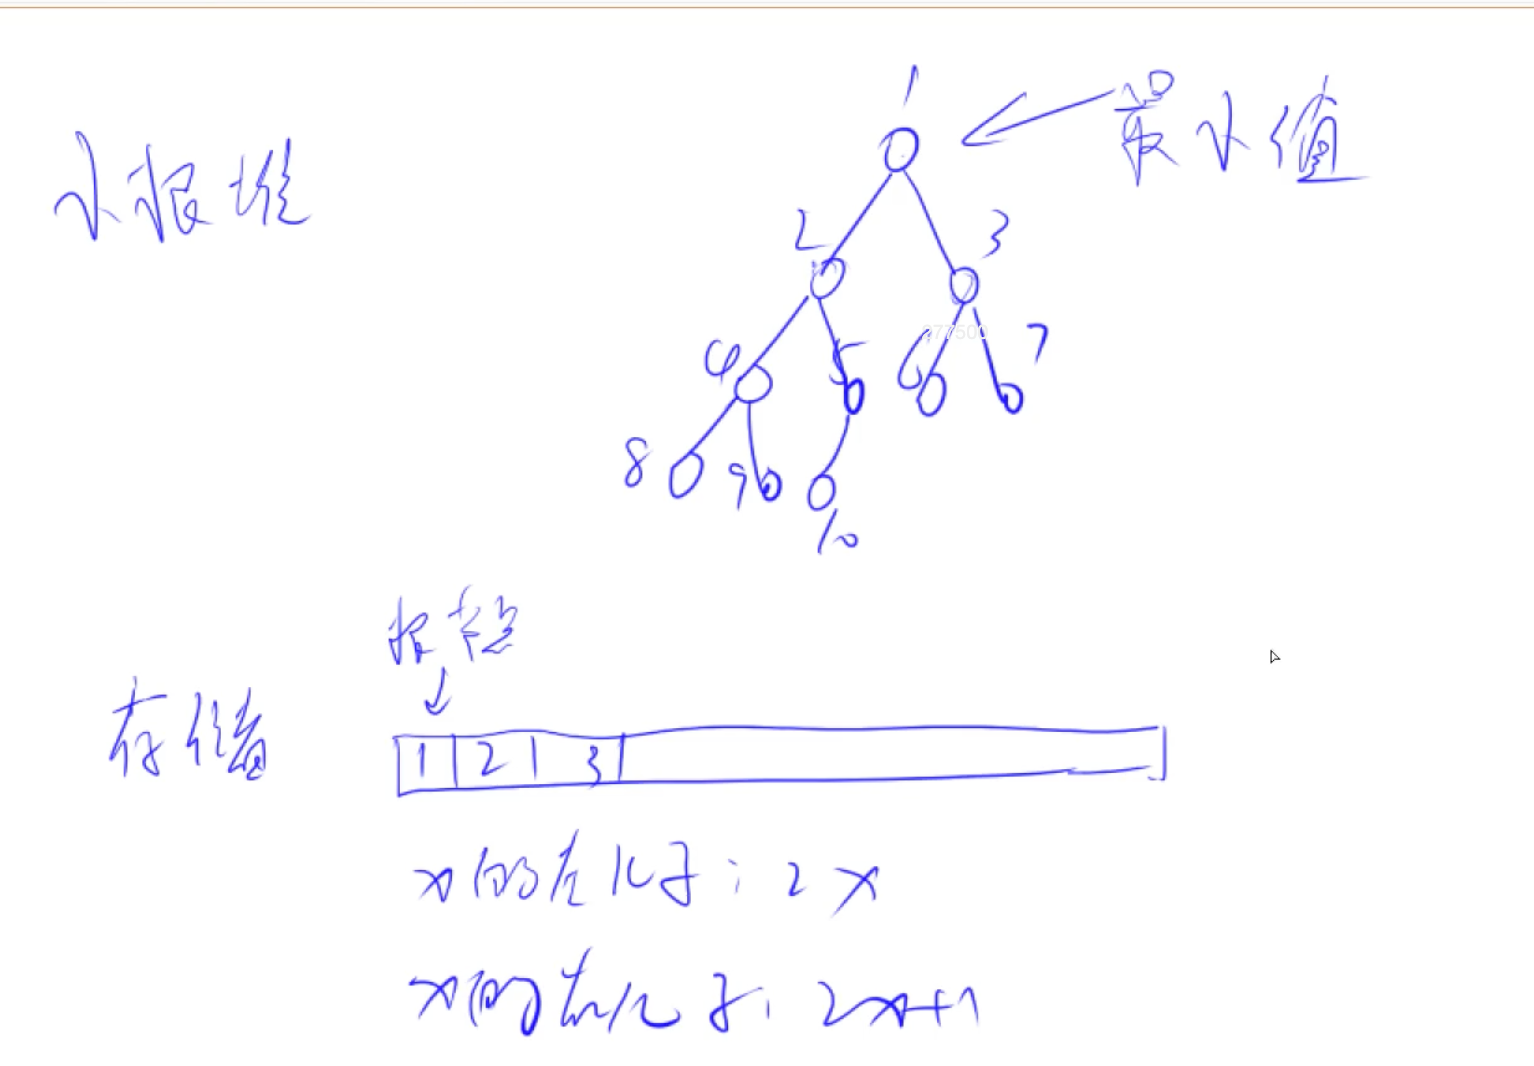 小根堆
1
最小值
2 3
4 5 6 7
277500
8 9
10
根节点
存储
1 2 3
x的左儿子: 2x
x的右儿子: 2x+1